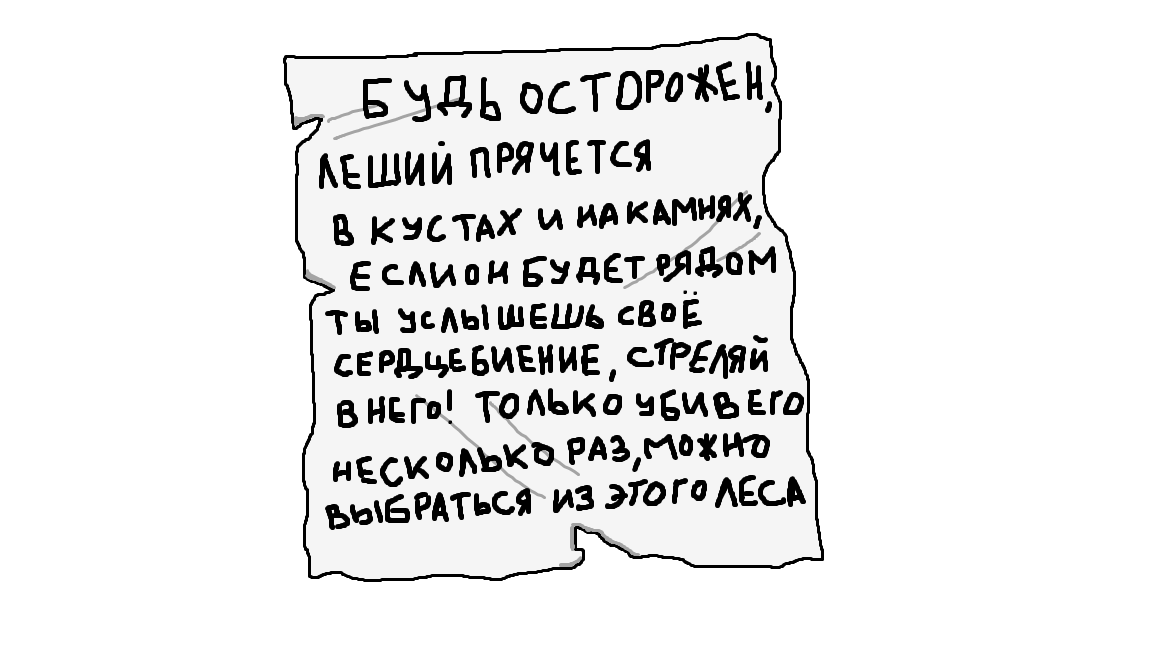 БУДЬ ОСТОРОЖЕН,
ЛЕШИЙ ПРЯЧЕТСЯ
В КУСТАХ И НА КАМНЯХ,
ЕСЛИ ОН БУДЕТ РЯДОМ
ТЫ УСЛЫШЕШЬ СВОЁ
СЕРДЦЕБИЕНИЕ, СТРЕЛЯЙ
В НЕГО! ТОЛЬКО УБИВ ЕГО
НЕСКОЛЬКО РАЗ, МОЖНО
ВЫБРАТЬСЯ ИЗ ЭТОГО ЛЕСА